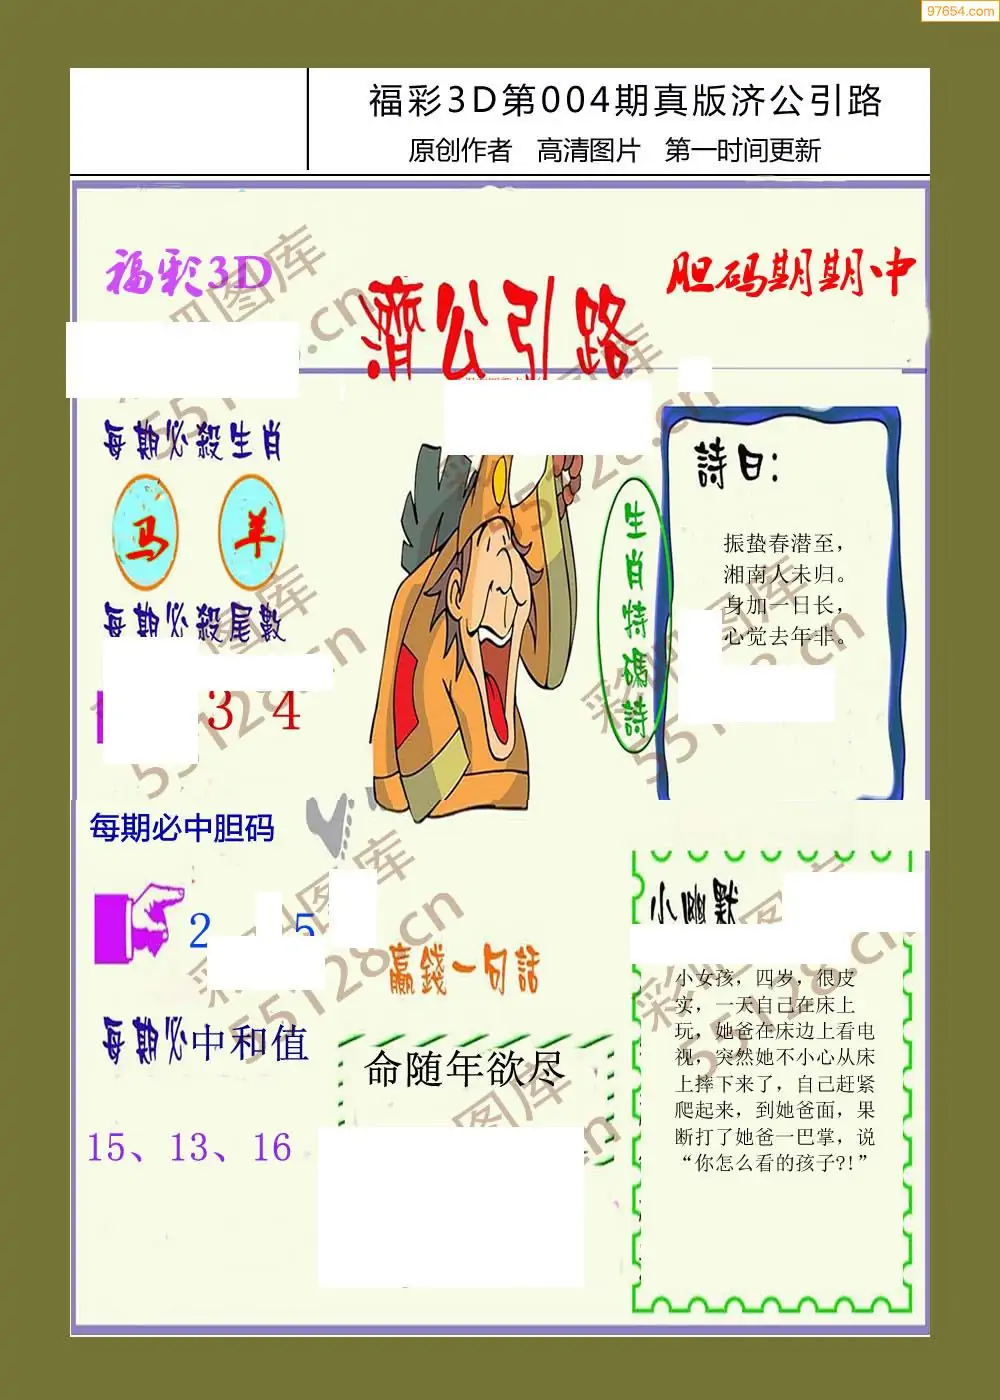 97654.com
福彩3D第004期真版济公引路
原创作者 高清图片 第一时间更新
福彩3D
濟公引路
胆码期期中
每期必殺生肖
马 羊
每期必殺尾數
3 4
生肖特碼詩
詩曰：
振蛰春潜至，
湘南人未归。
身加一日长，
心觉去年非。
每期必中胆码
2 5
每期必中和值
15、13、16
赢錢一句話
命随年欲尽
小幽默
小女孩，四岁，很皮
实，一天自己在床上
玩，她爸在床边上看电
视，突然她不小心从床
上摔下来了，自己赶紧
爬起来，到她爸面，果
断打了她爸一巴掌，说
“你怎么看的孩子?!”
彩吧图库
55128.cn